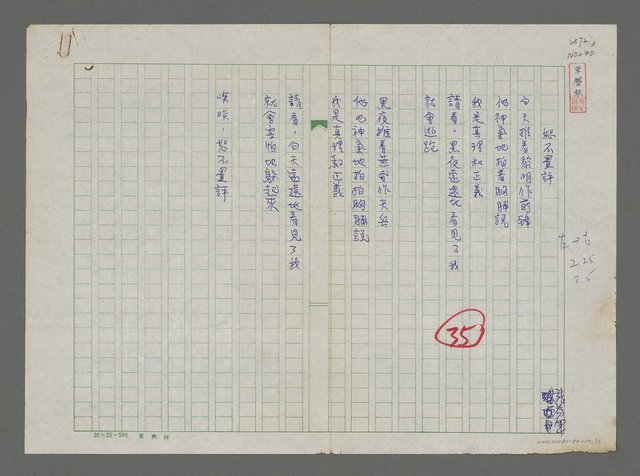 恕不置評
白天推着黎明作前鋒
他神氣地拍着胸脯說
我是真理和正義
請看，黑夜遠遠地看見了我
就會逃跑
黑夜推着黃昏作先兵
他也神氣地拍拍胸脯說
我是真理和正義
請看，白天遠遠地看見了我
就會害怕地躲起來
唉唉，恕不置評
35
2.25
3.5
20×25=500